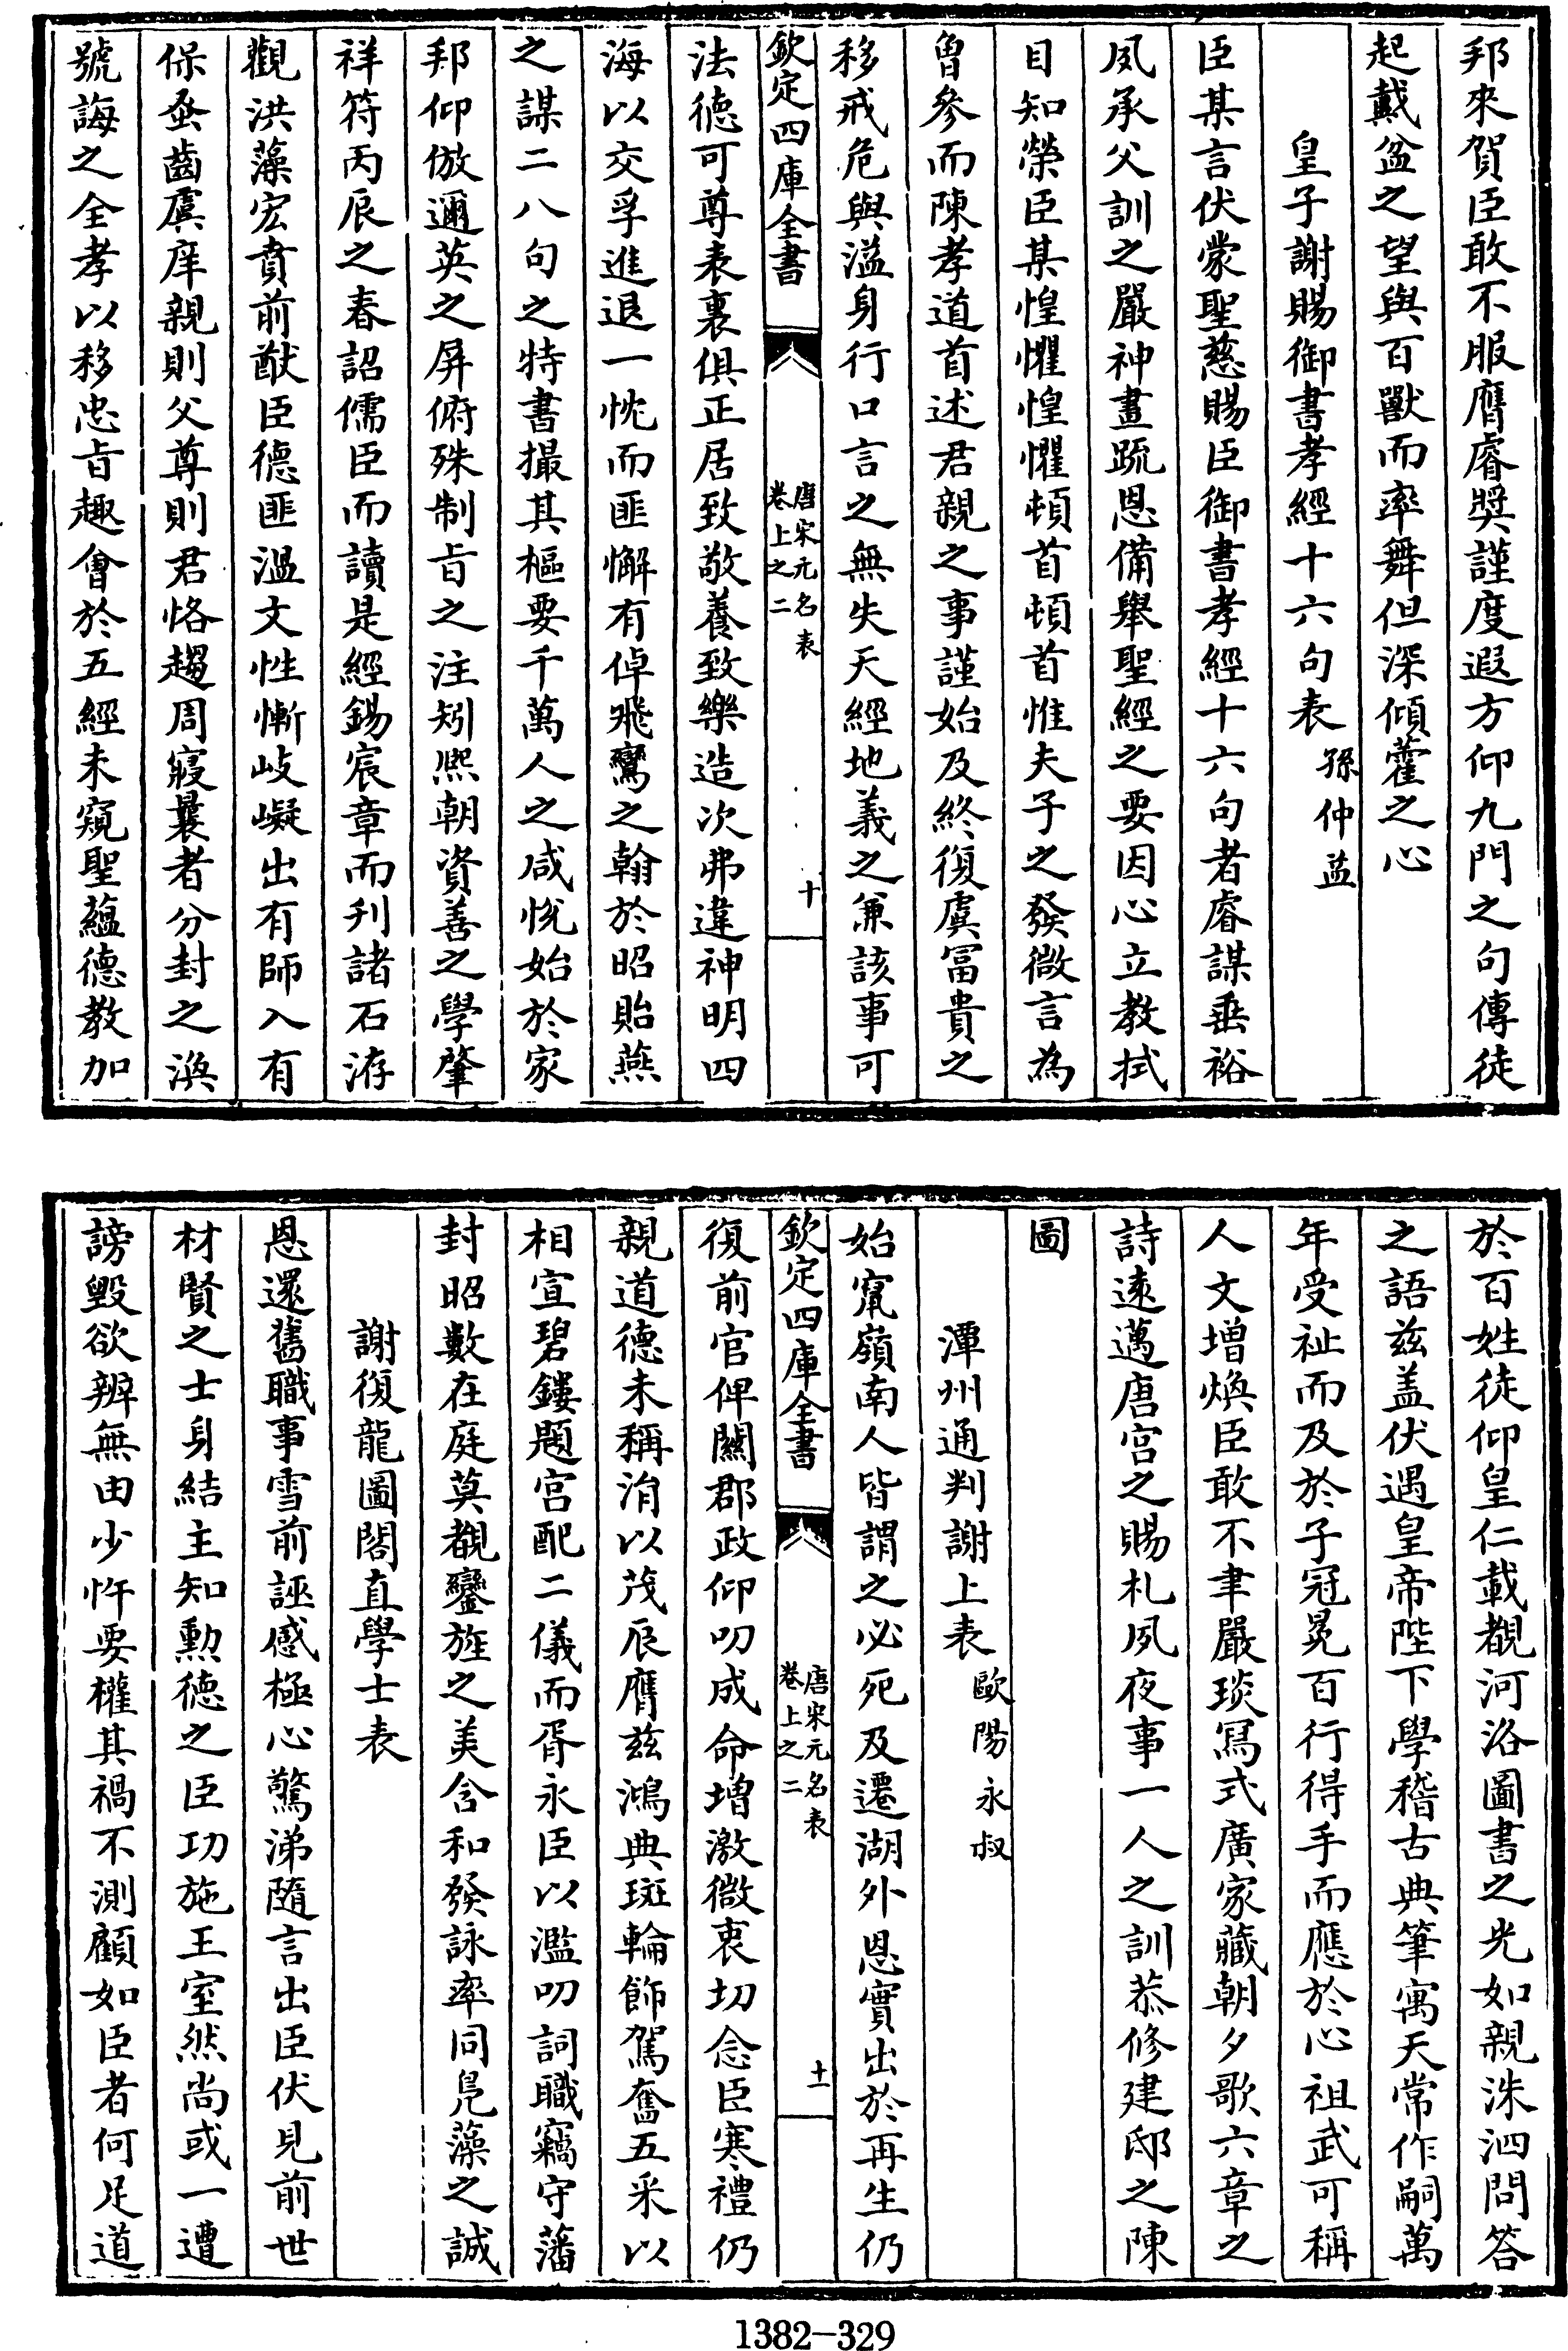 邦來賀臣敢不服膺睿獎謹度遐方仰九門之句傳徒
起戴盆之望與百獸而率舞但深傾藿之心
皇子謝賜御書孝經十六句表 孫仲益
臣某言伏蒙聖慈賜臣御書孝經十六句者睿謀垂裕
夙承父訓之嚴神畫疏恩備舉聖經之要因心立教拭
目知榮臣某惶懼惶懼頓首頓首惟夫子之發微言為
魯參而陳孝道首述君親之事謹始及終復虞冨貴之
移戒危與溢身行口言之無失天經地義之兼該事可
欽定四庫全書 唐宋元名表 卷上之二 十
法德可尊表裏俱正居致敬養致樂造次弗違神明四
海以交孚進退一忱而匪懈有倬飛鸞之翰於昭貽燕
之謀二八句之特書撮其樞要千萬人之咸悅始於家
邦仰倣邇英之屏俯殊制旨之注矧熙朝資善之學肇
祥符丙辰之春詔儒臣而讀是經錫宸章而刋諸石洊
觀洪藻宏賁前猷臣德匪溫文性慚岐嶷出有師入有
保蚤齒虞庠親則父尊則君恪趨周寢曩者分封之渙
號誨之全孝以移忠旨趣會於五經未窺聖藴德教加
於百姓徒仰皇仁載覩河洛圖書之光如親洙泗問答
之語兹盖伏遇皇帝陛下學稽古典筆寓天常作嗣萬
年受祉而及於子冠冕百行得手而應於心祖武可稱
人文增煥臣敢不聿嚴琰寫式廣家藏朝夕歌六章之
詩逺邁唐宫之賜札夙夜事一人之訓恭修建邸之陳
圖
潭州通判謝上表 歐陽永叔
始竄嶺南人皆謂之必死及遷湖外恩實出於再生仍
欽定四庫全書 唐宋元名表 卷上之二 十一
復前官俾關郡政仰叨成命增激微衷切念臣寒禮仍
親道德未稱涓以茂辰膺兹鴻典斑輪飾駕奮五采以
相宣碧鏤題宫配二儀而胥永臣以濫叨詞職竊守藩
封昭數在庭莫覩鑾旌之美含和發詠率同凫藻之誠
謝復龍圖閣直學士表
恩還舊職事雪前誣感極心驚涕隨言出臣伏見前世
材賢之士身結主知勳德之臣功施王室然尚或一遭
謗毀欲辨無由少忤要權其禍不測顧如臣者何足道
1382-329